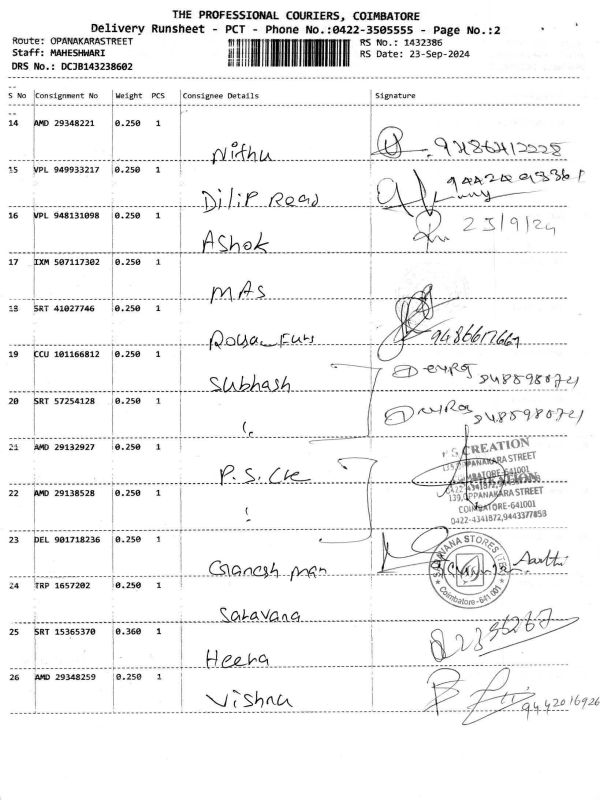 THE PROFESSIONAL COURIERS, COIMBATORE
Delivery Runsheet - PCT - Phone No.:0422-3505555 - Page No.:2
Route: OPANAKARASTREET RS No.: 1432386
Staff: MAHESHWARI RS Date: 23-Sep-2024
DRS No.: DCJB143238602
S No Consignment No Weight PCS Consignee Details Signature
14 AMD 29348221 0.250 1
Nithu
15 VPL 949933217 0.250 1
Dilip Read
16 VPL 948131098 0.250 1
Ashok 23/9/24
17 IXM 507117302 0.250 1
MAS
18 SRT 41027746 0.250 1
19 CCU 101166812 0.250 1
Subhash
20 SRT 57254128 0.250 1
21 AMD 29132927 0.250 1
P.S. CREATION
OPPANAKARA STREET
COIMBATORE-641001
22 AMD 29138528 0.250 1
139, OPPANAKARA STREET
COIMBATORE-641001
0422-4341872,9443377853
23 DEL 901718236 0.250 1
Ganesh man
Aarthi
SARAVANA STORES
Coimbatore-641 001
24 TRP 1657202 0.250 1
Saravana
25 SRT 15365370 0.360 1
Heena
26 AMD 29348259 0.250 1
Vishnu 9442016926